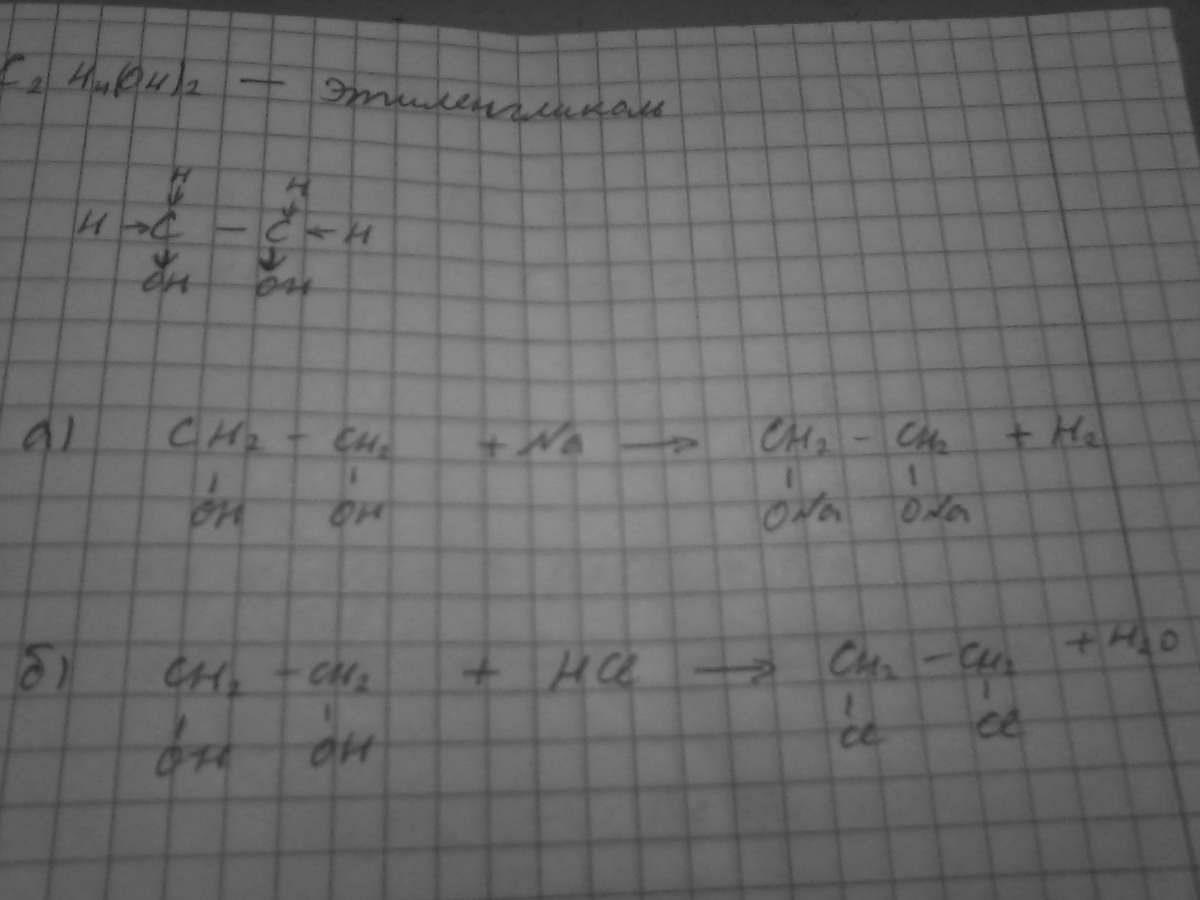 C₂H₄(OH)₂ — этиленгликоль
H H
H → C — C ← H
OH OH
а) CH₂ – CH₂ + Na → CH₂ – CH₂ + H₂
OH OH ONa ONa
б) CH₂ – CH₂ + HCl → CH₂ – CH₂ + H₂O
OH OH Cl Cl